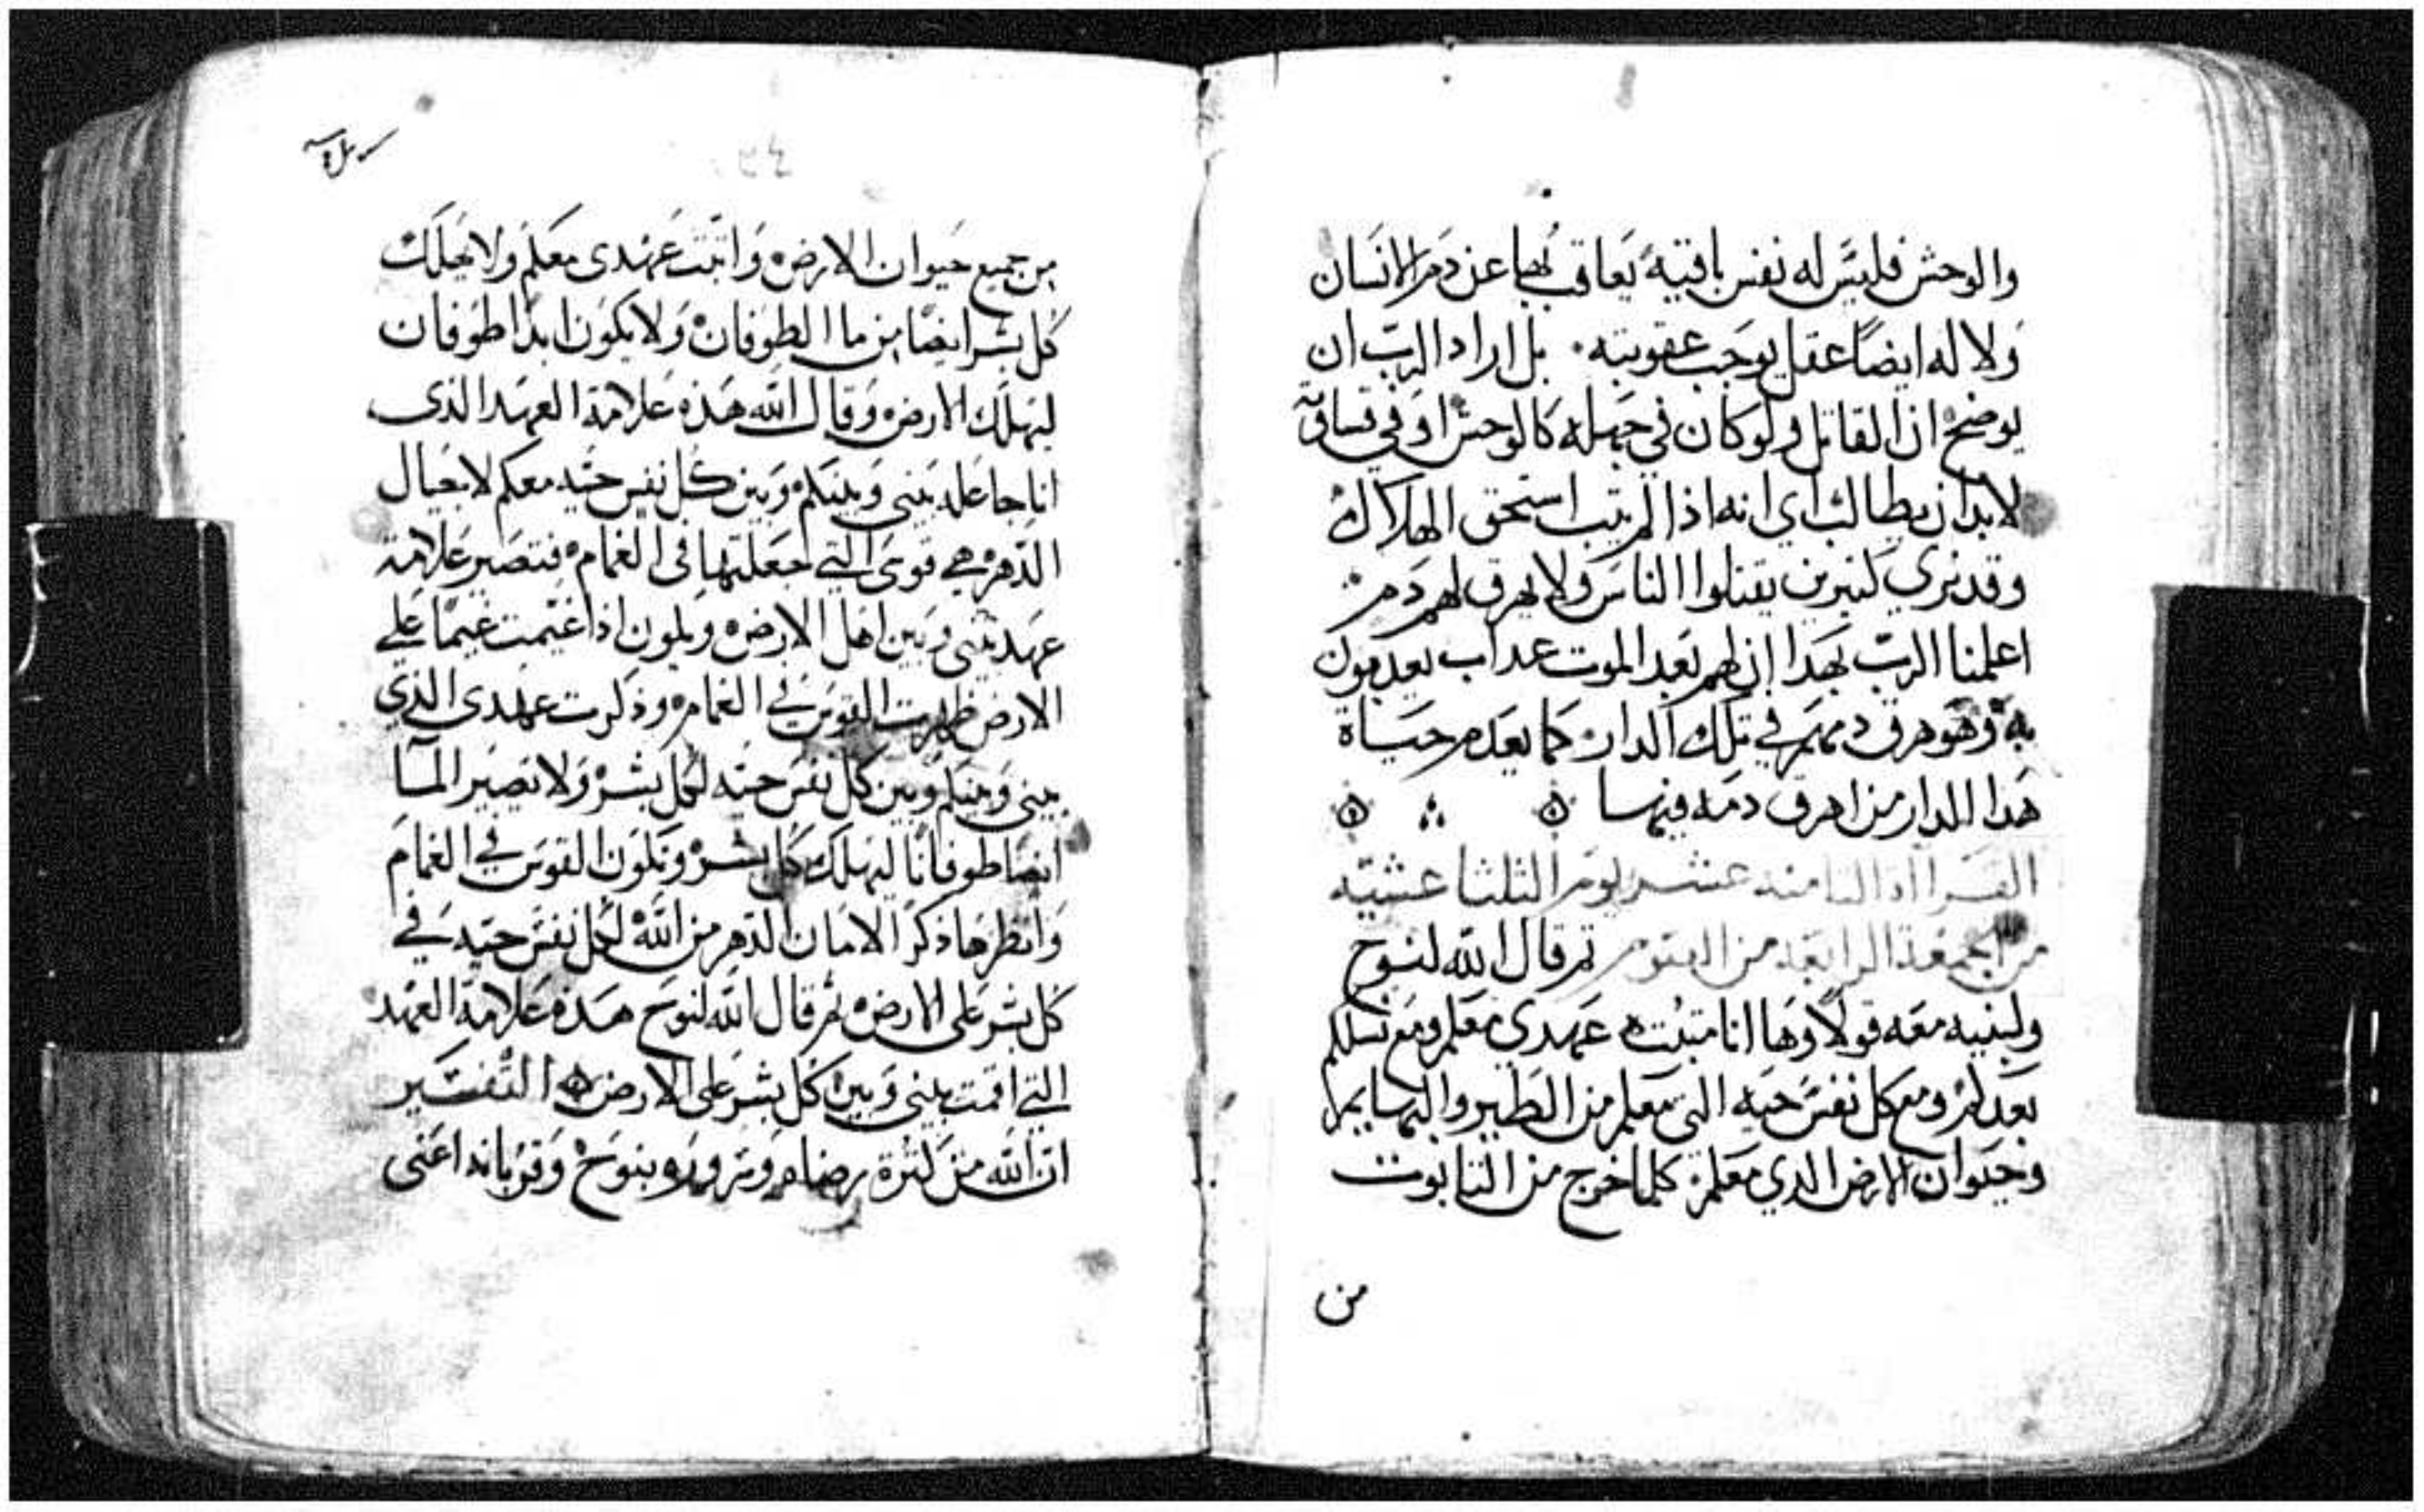 والوحش فليس له نفس باقيه يعاقب بهما عن دم الانسان
ولا له ايضا عقل يوجب عقوبته . بل اراد الرب ان
يوضح ان القاتل ولو كان في جهله كالوحش او في
لابد ان يطالب اي انه اذا لم يتب استحق الهلاك
وقد نري كثيرين يقتلوا الناس ولا يهرق لهم دم
اعلمنا الرب بهدا ان لهم بعد الموت عداب يعدبون
به وهو هرق دمهم في تلك الدار كما يعدم حياة
هدا الدار من اهرق دمه فيها
القرااه التامنه عشر يوم التلتا عشيه
من الجمعة الرابعه من الصوم تم قال الله لنوح
ولبنيه معه قولا وها انا متبت عهدي معكم ومع نسلكم
بعدكم ومع كل نفس حيه التي معكم من الطير والبهايم
وحيوان الارض الدي معكم كلما خرج من التابوت
من
من جميع حيوان الارض واتبت عهدى معكم ولا يهلك
كل بشر ايضا من ما الطوفان ولا يكون ابدا طوفان
ليهلك الارض وقال الله هذه علامة العهد الذى
انا جاعله بينى وبينكم وبين كل نفس حيه معكم لاجيال
الدهر هي قوسى التي اجعلتها فى الغمام فتصير علامة
عهد بينى وبين اهل الارض ويكون اذا غيمت غيما علي
الارض ظهرت القوس في الغمام وذكرت عهدى الذي
بينى وبينكم وبين كل نفس حيه لكل بشر ولا تصير المآ
ايضا طوفانا ليهلك كل بشر وتكون القوس في الغمام
وانظرها ذكر الامان الدهر من الله لكل نفس حيه في
كل بشر على الارض تم قال الله لنوح هذه علامة العهد
التي اقمت بينى وبين كل بشر على الارض التفسير
ان الله من كثرة رضاه وسروره بنوح وقربانه اعنى